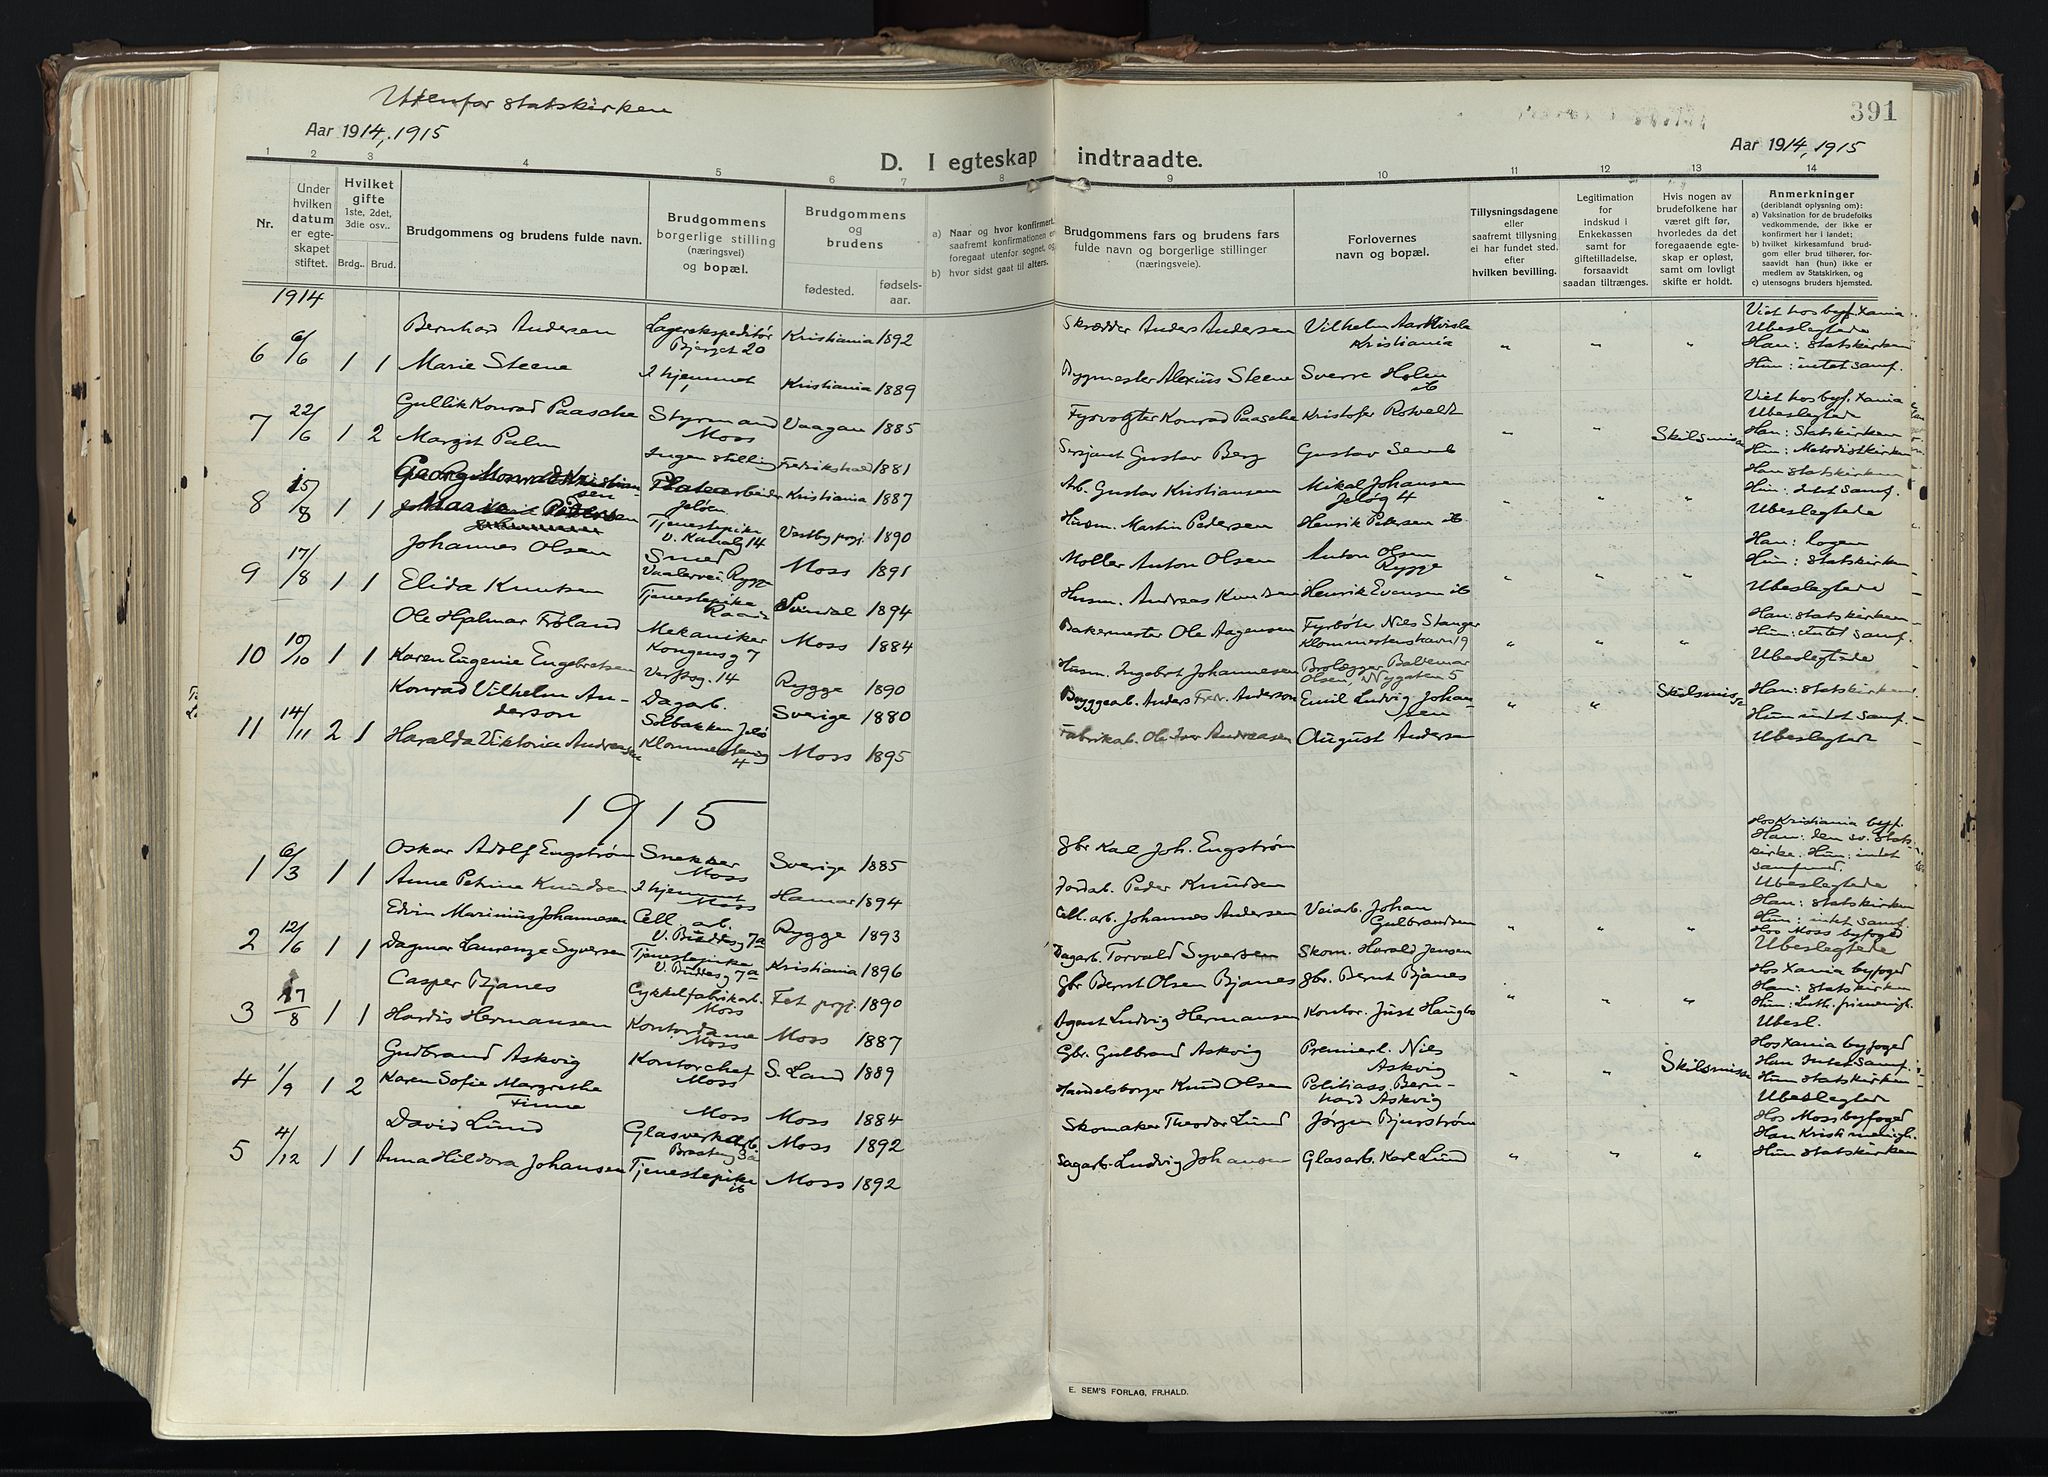 Utenfor statskirken
391
Aar 1914, 1915
Aar 1914, 1915
D. I egteskap indtraadte.
1 2 3 4 5 6 7 8 9 10 11 12 13 14
Nr.
Under hvilken datum er egteskapet stiftet.
Hvilket gifte 1ste, 2det, 3die osv..
Brdg.. Brud.
Brudgommens og brudens fulde navn.
Brudgommens borgerlige stilling (næringsvei) og bopæl.
Brudgommens og brudens
fødested. fødsels-aar.
a) Naar og hvor konfirmert, saafremt konfirmationen er foregaat utenfor sognet, og
b) hvor sidst gaat til alters.
Brudgommens fars og brudens fars fulde navn og borgerlige stillinger (næringsveie).
Forlovernes navn og bopæl.
Tillysningsdagene eller saafremt tillysning ei har fundet sted. efter hvilken bevilling.
Legitimation for indskud i Enkekassen samt for giftetilladelse, forsaavidt saadan tiltrænges.
Hvis nogen av brudefolkene har været gift før, hvorledes da det foregaaende egteskap er opløst, samt om lovligt skifte er holdt.
Anmerkninger (deriblandt oplysning om):
a) Vaksination for de brudefolks vedkommende, der ikke er konfirmert her i landet;
b) hvilket kirkesamfund brudgom eller brud tilhører, forsaavidt han (hun) ikke er medlem av Statskirken, og
c) utensogns bruders hjemsted.
1914
6 6/6 1 1 Bernhard Andersen Lagerekspeditør Bjerget 20 Kristiania 1892 Skrædder Anders Andersen Vilhelm Aarkvisla Kristiania " " " Viet hos byf. Xania Ubeslegtede Han: Statskirken
Marie Steene I hjemmet Kristiania 1889 Bygmester Alexius Steene Sverre Holen ib Hun: intet samf.
7 22/6 1 2 Gullik Konrad Paasche Styrmand Moss Vaagan 1885 Fyrvogter Konrad Paasche Kristofer Rotveldt " " Skilsmisse Viet hos byf. Xania Ubeslegtede Han: Statskirken
Margit Palm Ingen stilling Fredrikshald 1881 Sersjant Gustav Berg Gustav Hun: Metodistkirken
8 15/8 1 1 Georg Monrad Kristiansen Platearbeider Jeløen Kristiania 1887 Arb. Gustav Kristiansen Mikal Johansen Jeløg 4 " " " Han statskirken Hun: Intet samf. Ubeslegtede
Pedersen Tjenestepike V. Kanalg 14 Vestby prgj. 1890 Husm. Martin Pedersen Henrik Petersen ib
9 17/8 1 1 Johannes Olsen Smed Vaalervei, Rygge Moss 1891 Møller Anton Olsen Anton Olsen Rygge " " " Han: Ingen Hun: Statskirken
Elida Knutsen Tjenestepike Svindal 1894 Husm. Andreas Knudsen Henrik Evensen ib Ubeslegtede
10 10/10 1 1 Ole Hjalmar Frøland Mekaniker Kongensg 7 Moss 1884 Bakermester Ole Aagensen Fyrbøter Nils Stanger Klommestenshavn 19 " " " Han: Statskirken Hun: Intet samf.
Karen Eugenie Engebretsen Verftsg. 14 Rygge 1890 Husm. Ingebrt Johannesen Brolægger Baldemar Olsen, Nygaten 5 Ubeslegtede
11 14/11 2 1 Konrad Vilhelm Anderson Dagarb. Solbakken Jelø Sverige 1880 Bryggearb. Anders Fredr. Anderson Emil Ludvig Johansen " " Skilsmisse Han: Statskirken Hun intet Samf.
Haralda Viktoria Andreassen Klommestensng 4 Moss 1895 Fabrikab. Ole Ivar Andreasen August Andersen Ubeslegtede
1915
1 6/3 1 1 Oskar Adolf Engstrøm Snekker Moss Sverige 1885 Gbr Karl Joh. Engstrøm Hos Kristiania byf. Han: den sv. Statskirke. Hun: intet samfund.
Anne Petrine Knudsen I hjemmet Moss Hamar 1894 Jordab. Peder Knudsen Ubeslegtede
2 12/6 1 1 Edvin Marinius Johannesen Cell. arb. V. Buddesg 7a Rygge 1893 Cell. arb. Johannes Andersen Veiarb. Johan Gulbrandsen " " " Han: Statskirken Hun: intet Samf. Hos Moss byfoged
Dagmar Laurenze Syversen Tjenestepike V. Buddesg 7a Kristiania 1896 Dagarb. Torvald Syversen Skom. Harald Jensen Ubeslegtede
3 17/8 1 1 Casper Bjanes Cykkelfabrikarb. Moss Fet prgj. 1890 Gbr Bernt Olsen Bjanes Gbr. Bernt Bjanes " " " Hos Xania byfoged Han: Statskirken
Hardis Hermansen Kontordame Moss Moss 1887 Agent Ludvig Hermansen Kontor. Just Haugbo Hun: Luth. frimenigh. Ubesl.
4 1/9 1 2 Gudbrand Askvig Kontorchef Moss S. Land 1889 Gbr. Gulbrand Askvig Premierl. Nils Askvig " " Skilsmisse Hos Xania byfoged Han Intet Samf.
Karen Sofie Margrethe Finne Moss Moss 1884 Handelsborger Knud Olsen Politiass. Bernhard Askvig Hun Statskirken Ubeslegtede
5 4/12 1 1 David Lund Glasverkarb. Bratteng 3a Moss 1892 Skomaker Theodor Lund Jørgen Bjurstrøm " " " Hos Moss byfoged Han Kristi menigh.
Anna Hildora Johansen Tjenestepike ib Moss 1892 Sagarb. Ludvig Johansen Glasarb. Karl Lund Hun Statskirken
E. SEM'S FORLAG, FR.HALD.